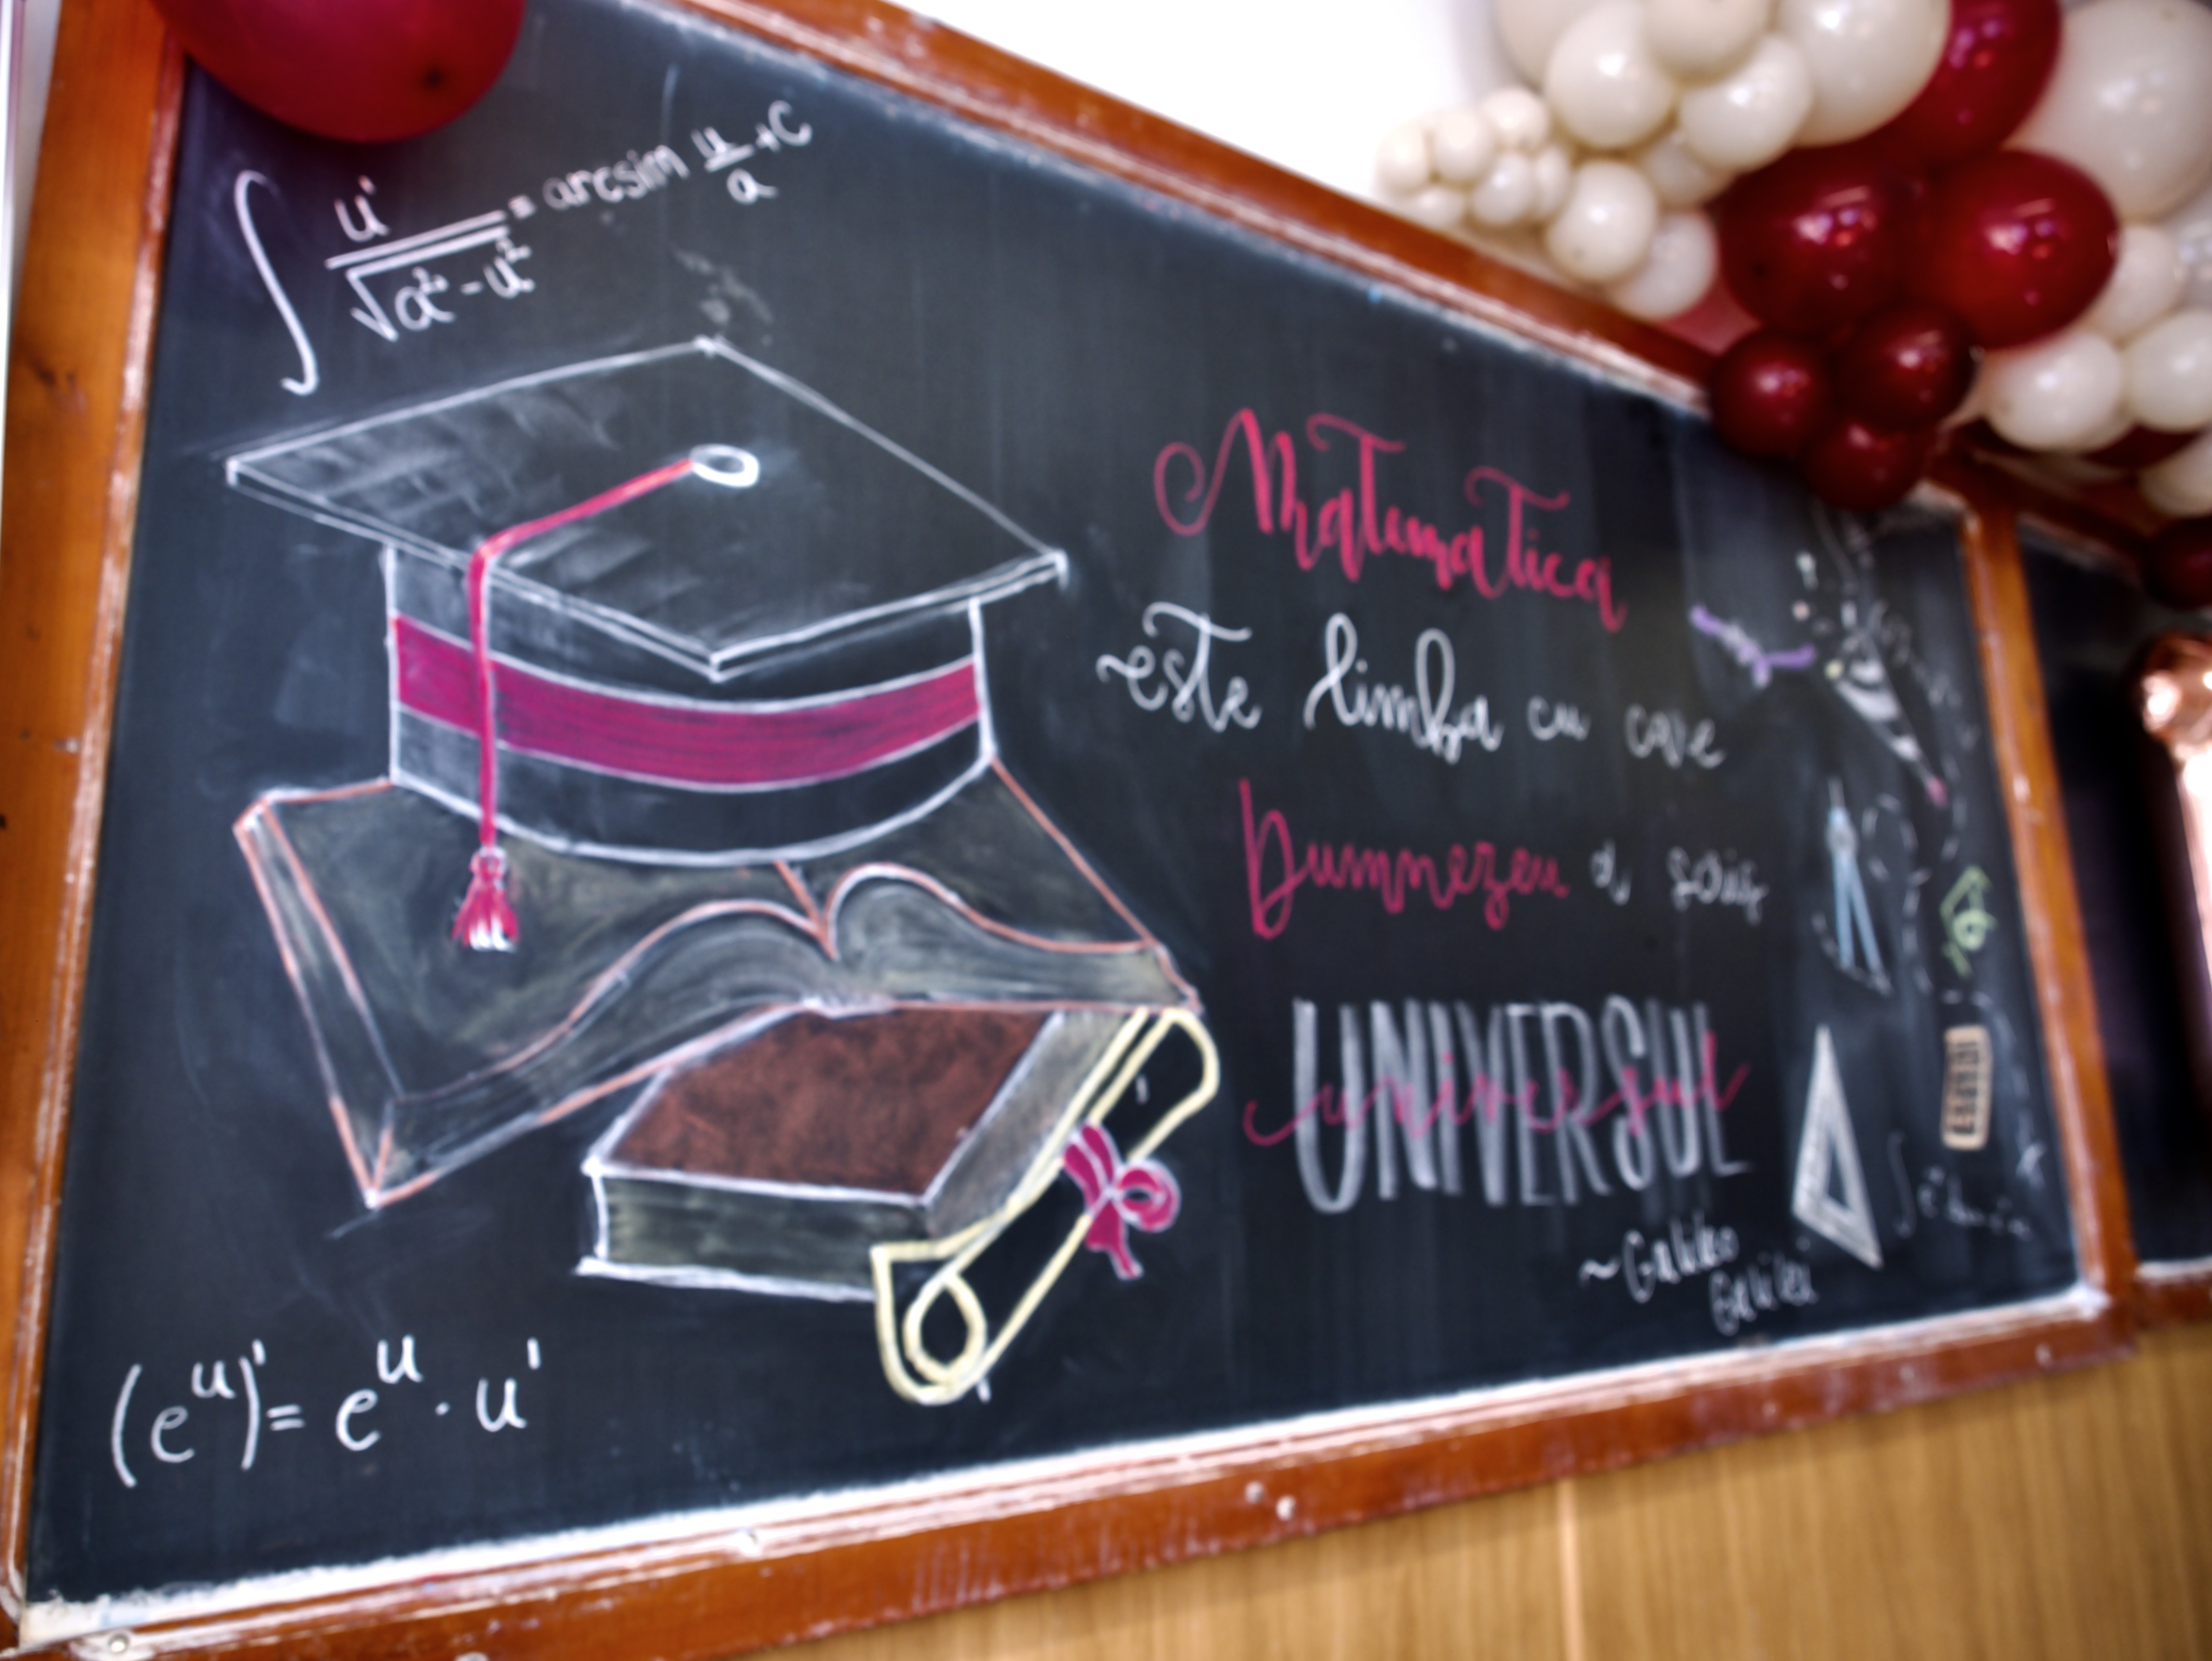 ∫ u'/√(a²-u²) = arcsin u/a + C
Matematica
este limba cu care
Dumnezeu a scris
UNIVERSUL
universul
~Galileo
Galilei
(e^u)' = e^u · u'